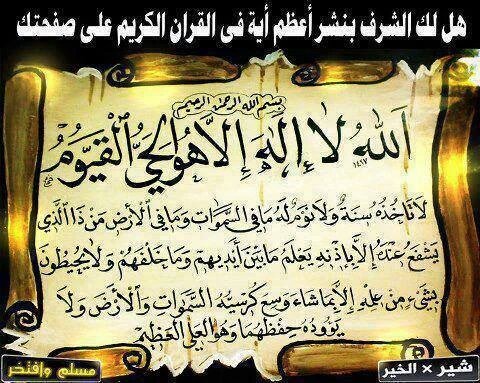 هل لك الشرف بنشر أعظم أية فى القران الكريم على صفحتك
بسم الله الرحمن الرحيم
اَللهُ لَا إِلٰهَ إِلَّا هُوَ الْحَيُّ الْقَيُّومُ
لَا تَأْخُذُهُ سِنَةٌ وَلَا نَوْمٌ لَهُ مَا فِي السَّمٰوَاتِ وَمَا فِي الْأَرْضِ مَنْ ذَا الَّذِي
يَشْفَعُ عِنْدَهُ إِلَّا بِإِذْنِهِ يَعْلَمُ مَا بَيْنَ أَيْدِيهِمْ وَمَا خَلْفَهُمْ وَلَا يُحِيطُونَ
بِشَيْءٍ مِنْ عِلْمِهِ إِلَّا بِمَا شَاءَ وَسِعَ كُرْسِيُّهُ السَّمٰوَاتِ وَالْأَرْضَ وَلَا
يَؤُودُهُ حِفْظُهُمَا وَهُوَ الْعَلِيُّ الْعَظِيمُ
شير × الخير
مسلم وإفتخر